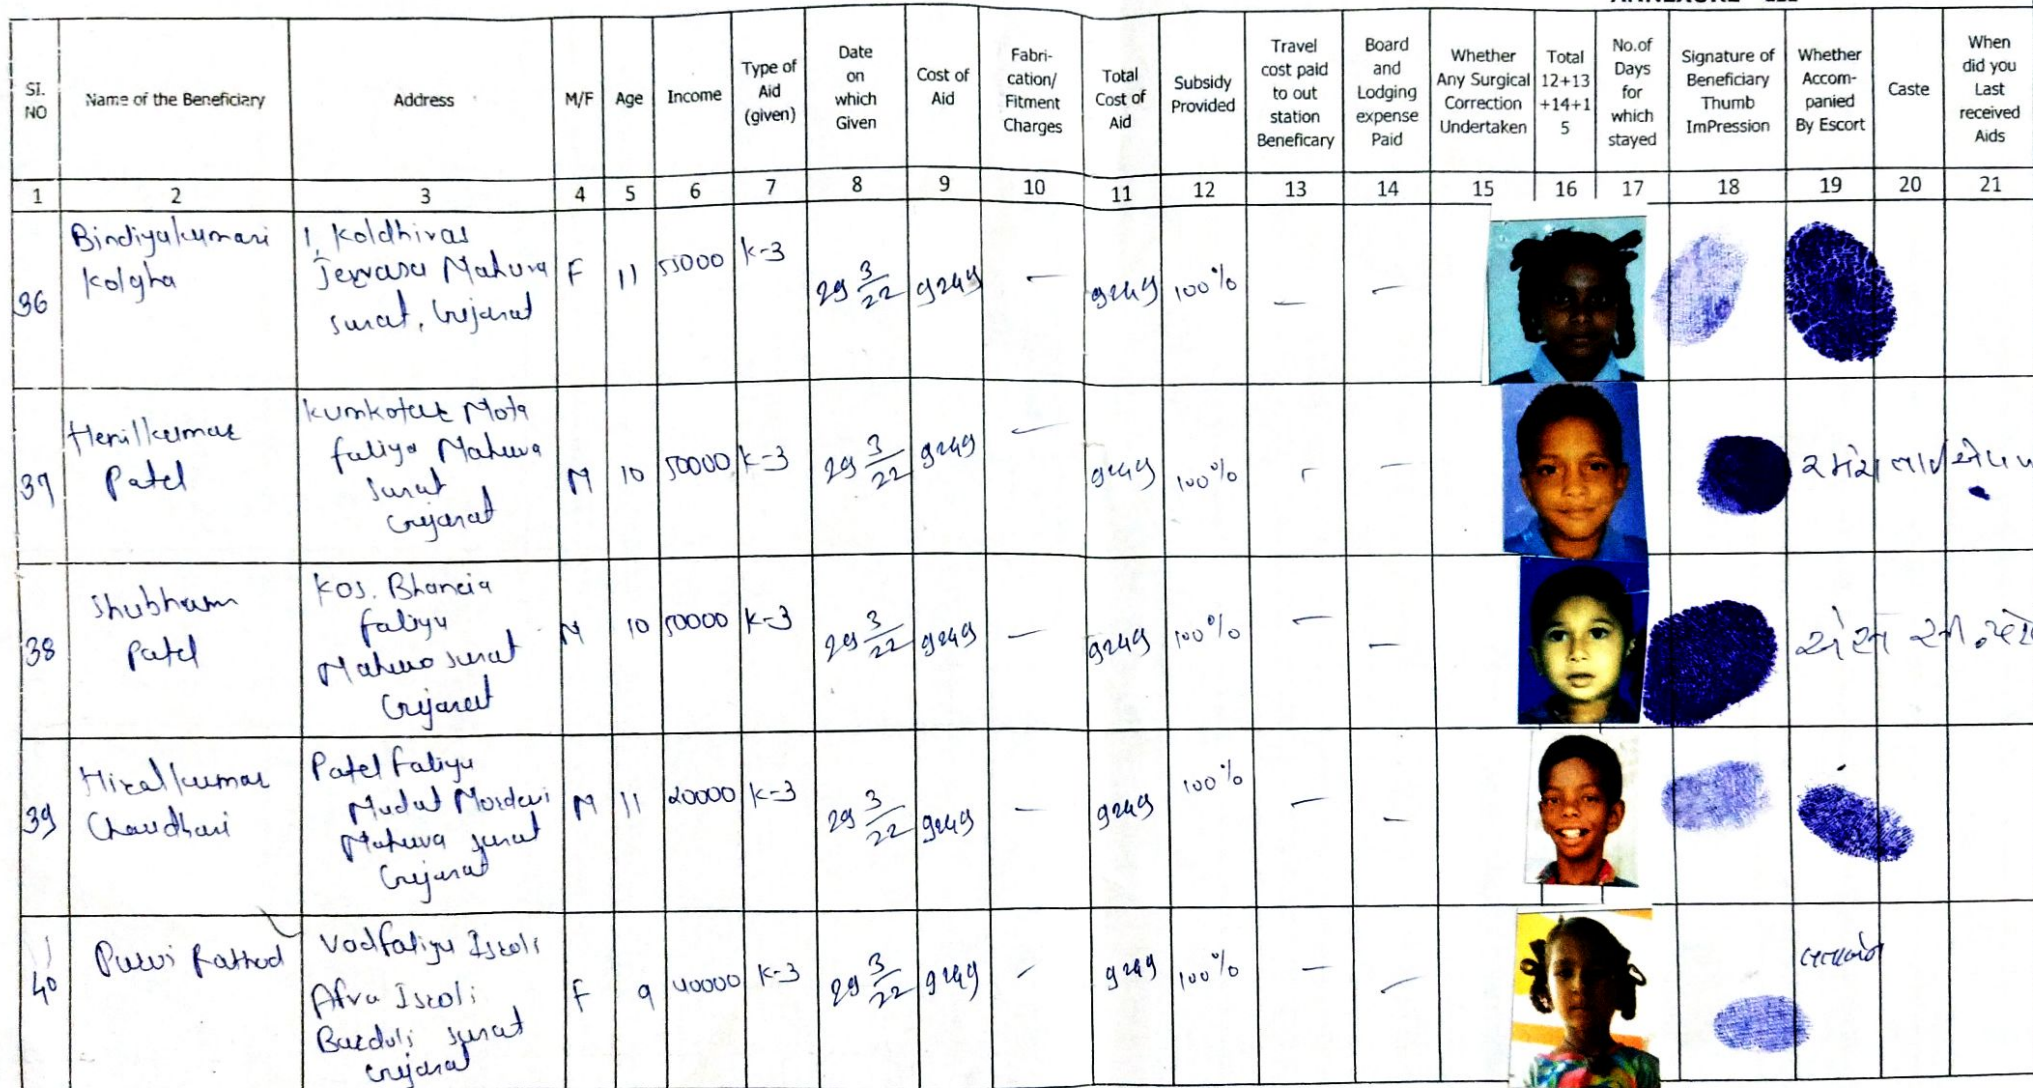 Sl. NO
Name of the Beneficiary
Address
M/F
Age
Income
Type of Aid (given)
Date on which Given
Cost of Aid
Fabri-cation/ Fitment Charges
Total Cost of Aid
Subsidy Provided
Travel cost paid to out station Beneficary
Board and Lodging expense Paid
Whether Any Surgical Correction Undertaken
Total 12+13 +14+1 5
No.of Days for which stayed
Signature of Beneficiary Thumb ImPression
Whether Accom-panied By Escort
Caste
When did you Last received Aids
1 2 3 4 5 6 7 8 9 10 11 12 13 14 15 16 17 18 19 20 21
36
Bindiyakumari
Kolgha
Mahuva
Surat, Gujarat
F 11 55000 K-3 29 3/22 9249 — 9249 100% — —
37
Henilkumar
Patel
Mota
faliya Mahuva
Surat
Gujarat
M 10 50000 K-3 29 3/22 9249 — 9249 100% - —
38
Shubham
Patel
Kos.
faliya
Mahuva Surat
Gujarat
M 10 50000 K-3 29 3/22 9249 — 9249 100% — —
39
Hiralkumar
Chaudhari
Patel faliya
Mudat
Mahuva Surat
Gujarat
M 11 20000 K-3 29 3/22 9249 — 9249 100% — —
40
Purvi Rathod
Vadfaliya Isroli
Afva Isroli
Bardoli Surat
Gujarat
F 9 40000 K-3 29 3/22 9249 - 9249 100% — —